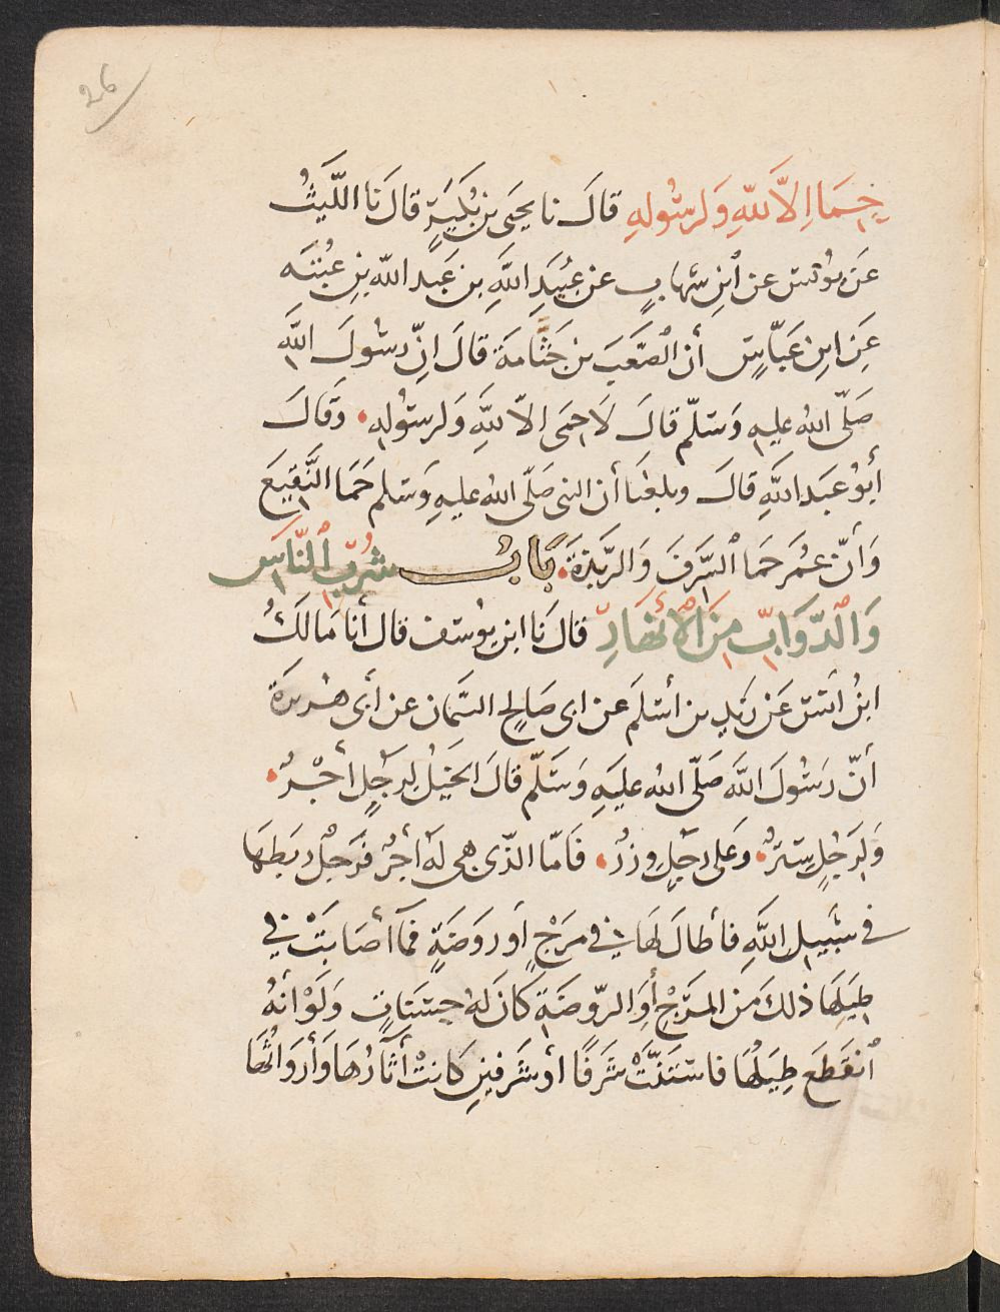 26
حِمَا اِلاَّ لِلّهِ وَلِرسُولِهِ قالَ نا يحيَى بن بُكَيرٍ قالَ نَا اللَّيثُ
عَن يونس عن ٱبنِ شهابٍ عن عُبَيدِ اللهِ بن عَبد الله بنِ عُتبَه
عَنِ ابنِ عَبّاسٍ أن الصَّعبَ بن جَثّامَةَ قالَ انّ رسُولَ اللهِ
صَلّى الله عليهِ وَسَلّم قالَ لَا حِمَى الاّ للهِ وَلرسُولِهِ وَقالَ
أبُو عَبَد اللهِ قالَ وبلغنَا أن النبى صَلّى الله عليهِ وَسَلم حَمَا النَّقِيعَ
وَأنّ عُمَر حَمَا السَّرَفَ وَالرَّبذَةَ بَابُ شُربِ ٱلنَّاسِ
وَٱلدَّوَابِّ مِنَ ٱلأَنهَارِ قالَ نَا ابن يوُسف قال أنا مَالكُ
ابنُ انَس عَن زَيدِ بن أسْلَم عن ابى صَالِحٍ السَّمان عن أبى هُريرَةَ
أنّ رَسُولَ اللهِ صَلّى الله عليَهِ وَسَلّم قالَ الخيَلُ لِرَجُلٍ أجْرُ
وَلِرَجُلٍ سِترُ وَعَلى رَجُلٍ وِزرُ فَامّا الذّى هى لهُ أجرُ فَرَجُلُ ربَطهَا
فى سَبِيلِ اللهِ فأطالَ لهَا فى مَرْجٍ أو رَوضَةٍ فمَا أصَابَتْ فى
طِيَلِهَا ذلكَ مَن المَرْجِ أوِ الرّوضَةِ كانَ لهُ حِسَنَاتٍ وَلَوْ أنهُ
ٱنقَطَعَ طِيَلُهَا فاستَنَّتْ شَرَفًا أو شَرفينِ كَانتْ أثَارُهَا وَأروَاثُهَا